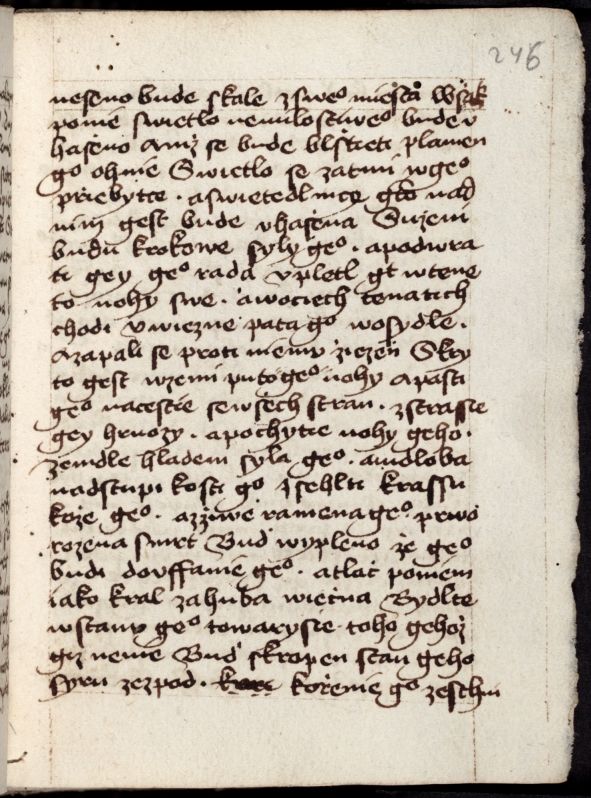 246
neseno bude skale zsweo miesta Wssak
ponie swietlo nemilostiweo bude v
haseno Aniz se bude blsstieti plamen
go ohnie Swietlo se zatmi wgeo
priebytce . aswietedlnice gto nad
nim gest bude vhasena Suzeni
budu krokowe syly geo . apodwra
ti gey geo rada vpletl gt wtene
to nohy swe . awociech tenatich
chodi vwiezne pata go wosydle .
Azapali se proti niemu ziezen Skry
to gest wzemi puto geo nohy apasti
geo nacestie sewsech stran . zstrassie
gey hruozy . apochytie nohy geho .
zemdle hladem syla geo . amdloba
nadstupi kosti go Jsehlti krassu
koze geo . azziwe ramena geo . prwo
rozena smrt Bud wypleno ze geo
budi douffanie geo . atlac poniem
iako kral zahuba wiecna Bydlte
wstanu geo towarysie toho gehoz
giz nenie Bud skropen stan geho
syru zezpod . korzenie go zeschni